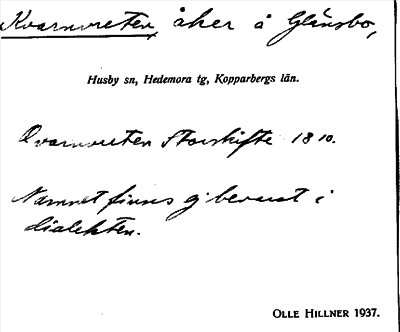 Kvarnvreten, åker å Glänsbo,
Husby sn, Hedemora tg, Kopparbergs län.
Qvarnvreten Storskifte 1810.
Namnet finns ej bevarat i
dialekten.
OLLE HILLNER 1937.